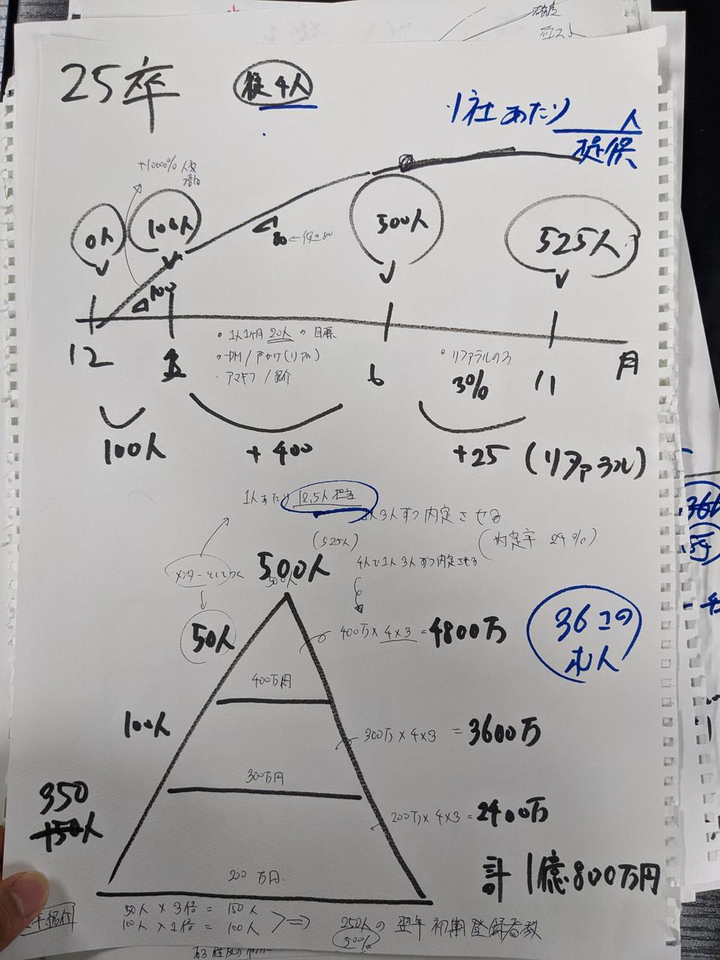 25卒
従4人
1社あたり 人
+10000% 人数
0人
100人
500人
525人
100
80
12
1
6
11
月
・1人1ヶ月 20人の目標
・DM/アポ
・アマギフ/紹介
・リファラルのみ
3%
100人
+400
+25 (リファラル)
1人あたり 12.5人担当
3人ずつ内定させる
(525人)
(内定率 24%)
メンターとしてつく
500人
4人で1人3人ずつ内定させる
50人
400万×4×3=4800万
36この
求人
400万円
100人
300万×4×3=3600万
300万円
350
+50人
200万×4×3=2400万
200万円
計 1億800万円
50人×3倍=150人
100人×1倍=100人
⇒
250人の翌年初期登録者数
50%